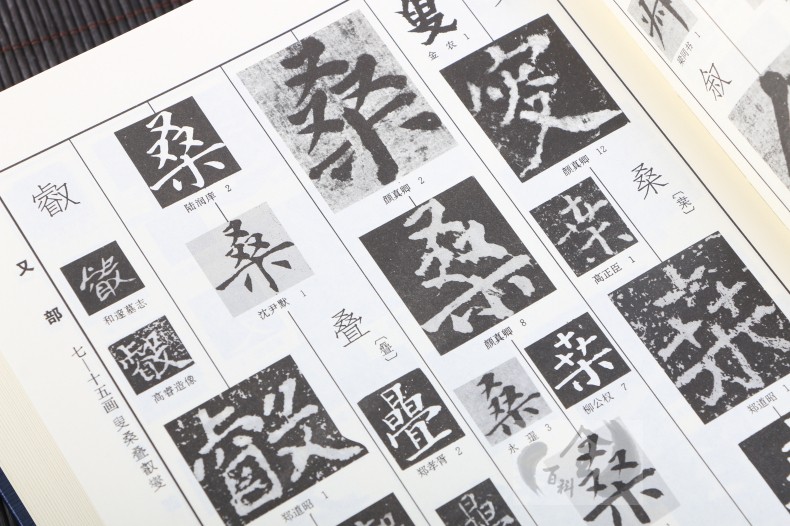 梁同书 1
桑
〔桒〕
桒
郑道昭 1
叟
金农 1
颜真卿 12
桒
高正臣 1
桒
柳公权 7
桑
桑
颜真卿 2
桑
颜真卿 8
桑
永瑆 3
桑
陆润庠 2
桑
沈尹默 1
叠
〔疊〕
疊
郑孝胥 2
叡
和邃墓志
高睿造像
郑道昭 1
又部
七—十五画
叟桑叠叡燮
百科